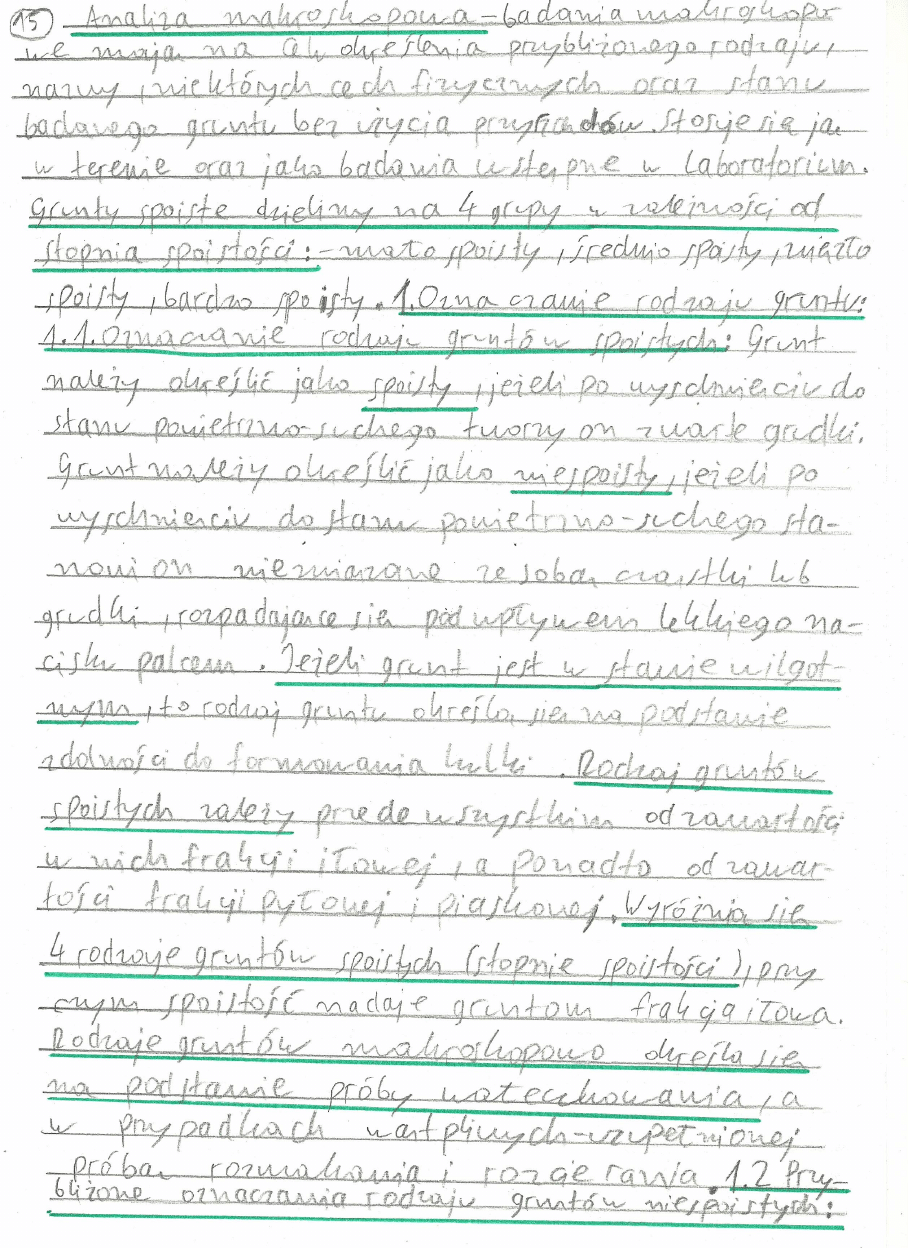 15 Analiza makroskopowa - badania makroskopo
we mają na celu określenia przybliżonego rodzaju,
nazwy, niektórych cech fizycznych oraz stanu
badanego gruntu bez użycia przyrządów. Stosuje się ją
w terenie oraz jako badania wstępne w laboratorium.
Grunty spoiste dzielimy na 4 grupy w zależności od
stopnia spoistości: - mało spoisty, średnio spoisty, zwięzło
spoisty, bardzo spoisty. 1. Oznaczanie rodzaju gruntu:
1.1. Oznaczanie rodzaju gruntów spoistych: Grunt
należy określić jako spoisty, jeżeli po wyschnięciu do
stanu powietrzno-suchego tworzy on zwarte grudki.
Grunt należy określić jako niespoisty, jeżeli po
wyschnięciu do stanu powietrzno-suchego sta-
nowi on niezwiązane ze sobą cząstki lub
grudki, rozpadające się pod wpływem lekkiego na-
cisku palcem. Jeżeli grunt jest w stanie wilgot-
nym, to rodzaj gruntu określa się na podstawie
zdolności do formowania kulki. Rodzaj gruntów
spoistych zależy przede wszystkim od zawartości
w nich frakcji iłowej, a ponadto od zawar-
tości frakcji pyłowej i piaskowej. Wyróżnia się
4 rodzaje gruntów spoistych (stopnie spoistości), przy
czym spoistość nadaje gruntom frakcja iłowa.
Rodzaje gruntów makroskopowo określa się
na podstawie próby wałeczkowania, a
w przypadkach wątpliwych - uzupełnionej
próbą rozmakania i rozcierania. 1.2 Przy-
bliżone oznaczania rodzaju gruntów niespoistych: